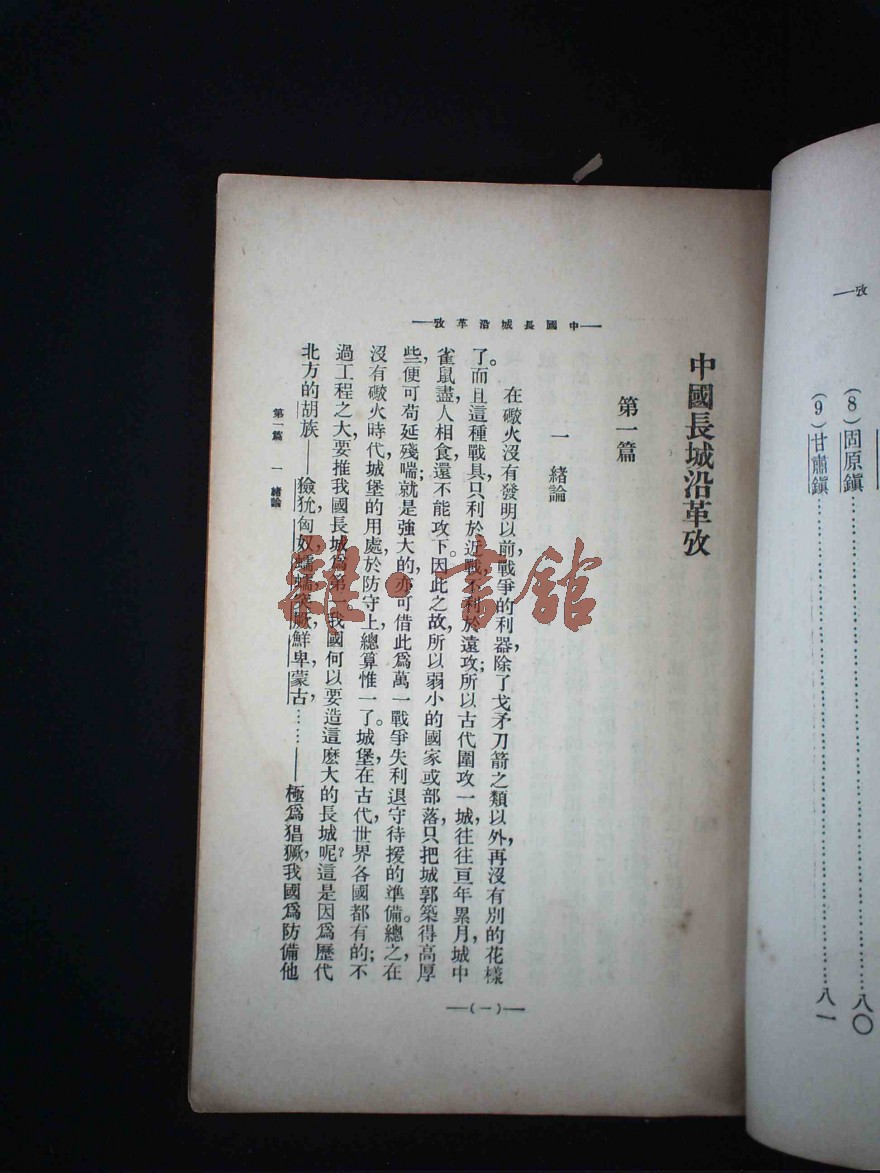 攷—
(8)固原鎭……八〇
(9)甘肅鎭……八一
—中國長城沿革攷—
中國長城沿革攷
第一篇
一 緒論
在礮火沒有發明以前,戰爭的利器,除了戈矛刀箭之類以外,再沒有別的花樣
了。而且這種戰具,只利於近戰,不利於遠攻;所以古代圍攻一城,往往亘年累月,城中
雀鼠盡,人相食,還不能攻下。因此之故,所以弱小的國家或部落,只把城郭築得高厚
些,便可苟延殘喘;就是強大的,亦可借此爲萬一戰爭失利退守待援的準備。總之在
沒有礮火時代,城堡的用處,於防守上總算惟一了。城堡在古代,世界各國都有的;不
過工程之大,要推我國長城爲第一。我國何以要造這麽大的長城呢?這是因爲歷代
北方的胡族——獫狁,匈奴,蠕蠕,突厥,鮮卑,蒙古,……——極爲猖獗,我國爲防備他
第一篇 一 緒論
—(一)—
雜·書館